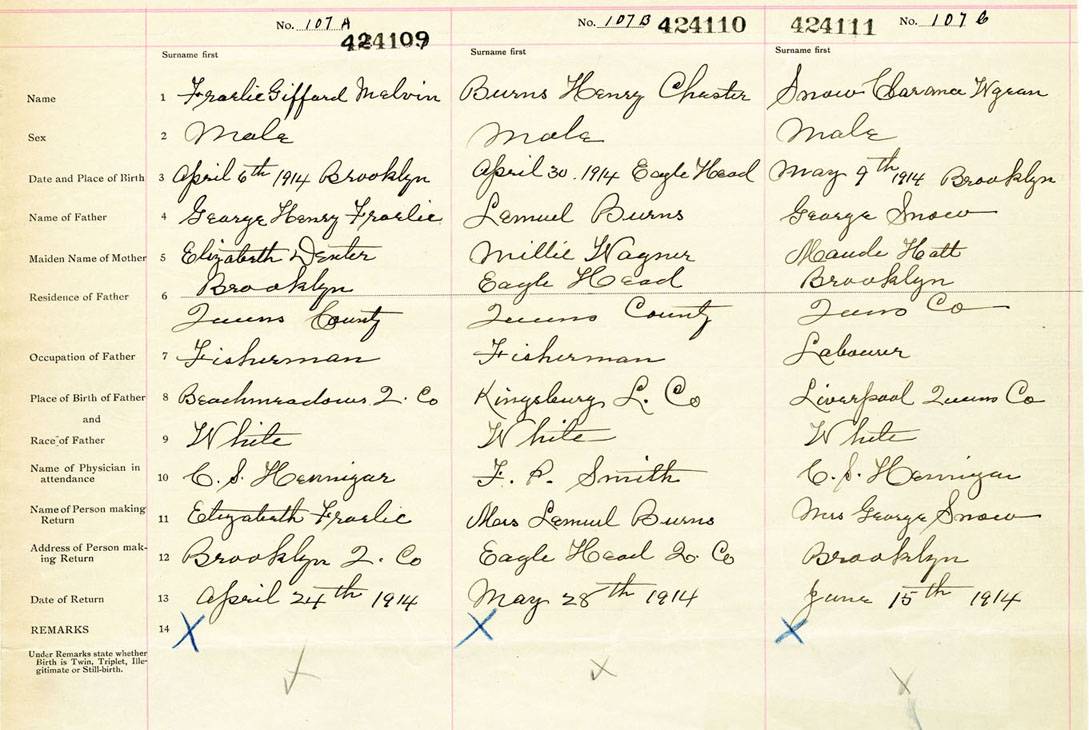 No. 107 A 424109 No. 107 B 424110 424111 No. 107 C
Surname first Surname first Surname first
Name 1 Fraelic Gifford Melvin Burns Henry Chester Snow Clarance
Sex 2 Male Male Male
Date and Place of Birth 3 April 6th 1914 Brooklyn April 30. 1914 Eagle Head May 9th 1914 Brooklyn
Name of Father 4 George Henry Fraelic Lemuel Burns George Snow
Maiden Name of Mother 5 Elizabeth Dexter Millie Wagner Maude Hatt
Residence of Father 6 Brooklyn Eagle Head Brooklyn
Queens County Queens County Queens Co
Occupation of Father 7 Fisherman Fisherman Labourer
Place of Birth of Father 8 Beachmeadows Q. Co Kingsburg L. Co Liverpool Queens Co
and
Race of Father 9 White White White
Name of Physician in
attendance 10 C. S. Hennigar F. P. Smith C. S. Hennigar
Name of Person making
Return 11 Elizabeth Fraelic Mrs Lemuel Burns Mrs George Snow
Address of Person mak-
ing Return 12 Brooklyn Q. Co Eagle Head Q. Co Brooklyn
Date of Return 13 April 24th 1914 May 28th 1914 June 15th 1914
REMARKS 14 X X X
Under Remarks state whether
Birth is Twin, Triplet, Ille-
gitimate or Still-birth.